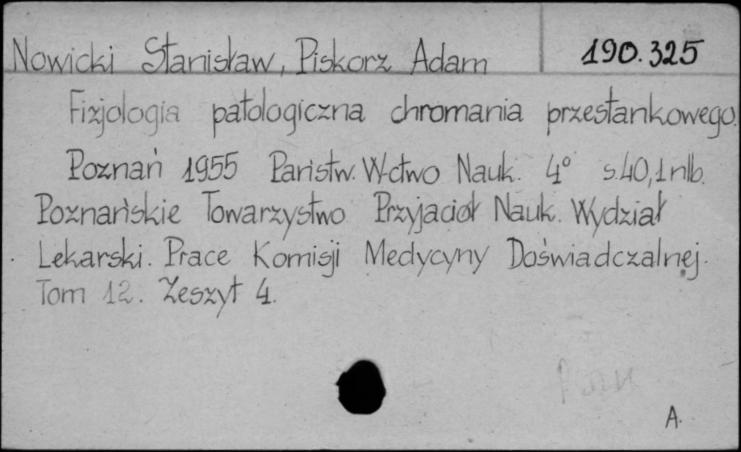 Nowicki Stanisław, Piskorz Adam 190.325
Fizjologia patologiczna chromania przestankowego.
Poznań 1955 Państw. W-ctwo Nauk. 4° s.40,1nlb.
Poznańskie Towarzystwo Przyjaciół Nauk. Wydział
Lekarski. Prace Komisji Medycyny Doświadczalnej.
Tom 12. Zeszyt 4.
A.